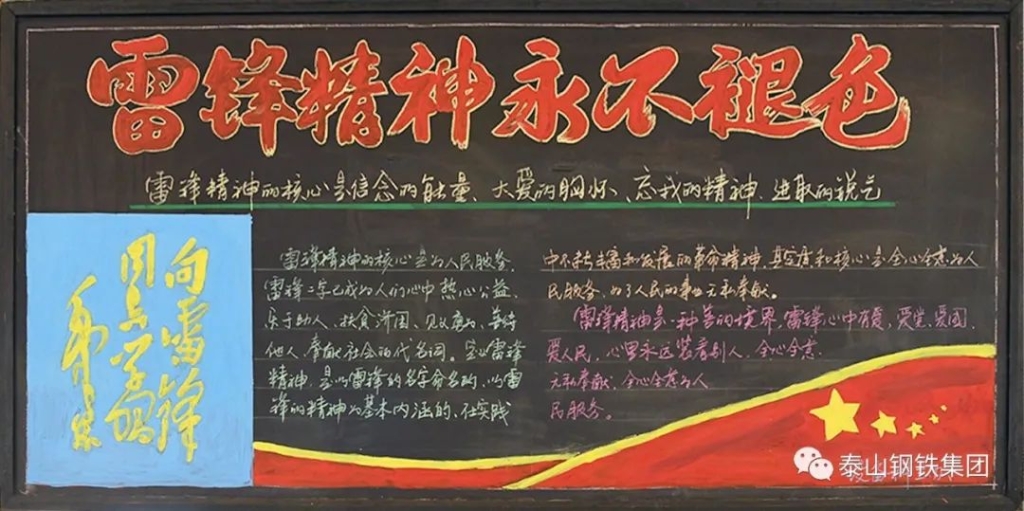 雷锋精神永不褪色
雷锋精神的核心是信念的能量、大爱的胸怀、忘我的精神、进取的锐气
向雷锋
同志学习
毛泽东
雷锋精神的核心是为人民服务,
雷锋二字已成为人们心中热心公益、
乐于助人、扶贫济困、见义勇为、善待
他人、奉献社会的代名词。是以雷锋
精神,是以雷锋的名字命名的,以雷
锋的精神为基本内涵的、在实践
中不断丰富和发展的革命精神,其实质和核心是全心全意为人
民服务,为了人民的事业无私奉献。
雷锋精神是一种善的境界,雷锋心中有爱,爱党、爱国、
爱人民,心里永远装着别人,全心全意
无私奉献、全心全意为人
民服务。
泰山钢铁集团